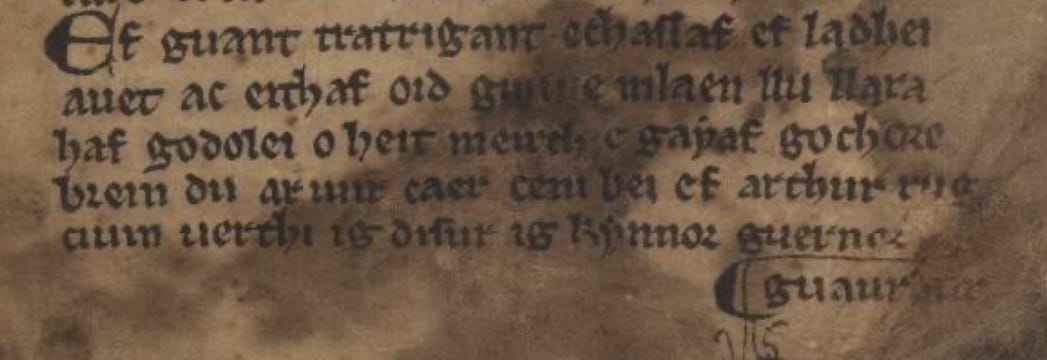 Ef guant tratrigant echassaf ef ladhei
auet ac eithaf oid guiu e mlaen llu llara
haf godolei o heit meirch e gayaf gochore
brein du ar uur caer ceni bei ef arthur rug
ciuin uerthi ig disur ig kynnor guernor
guaurdur